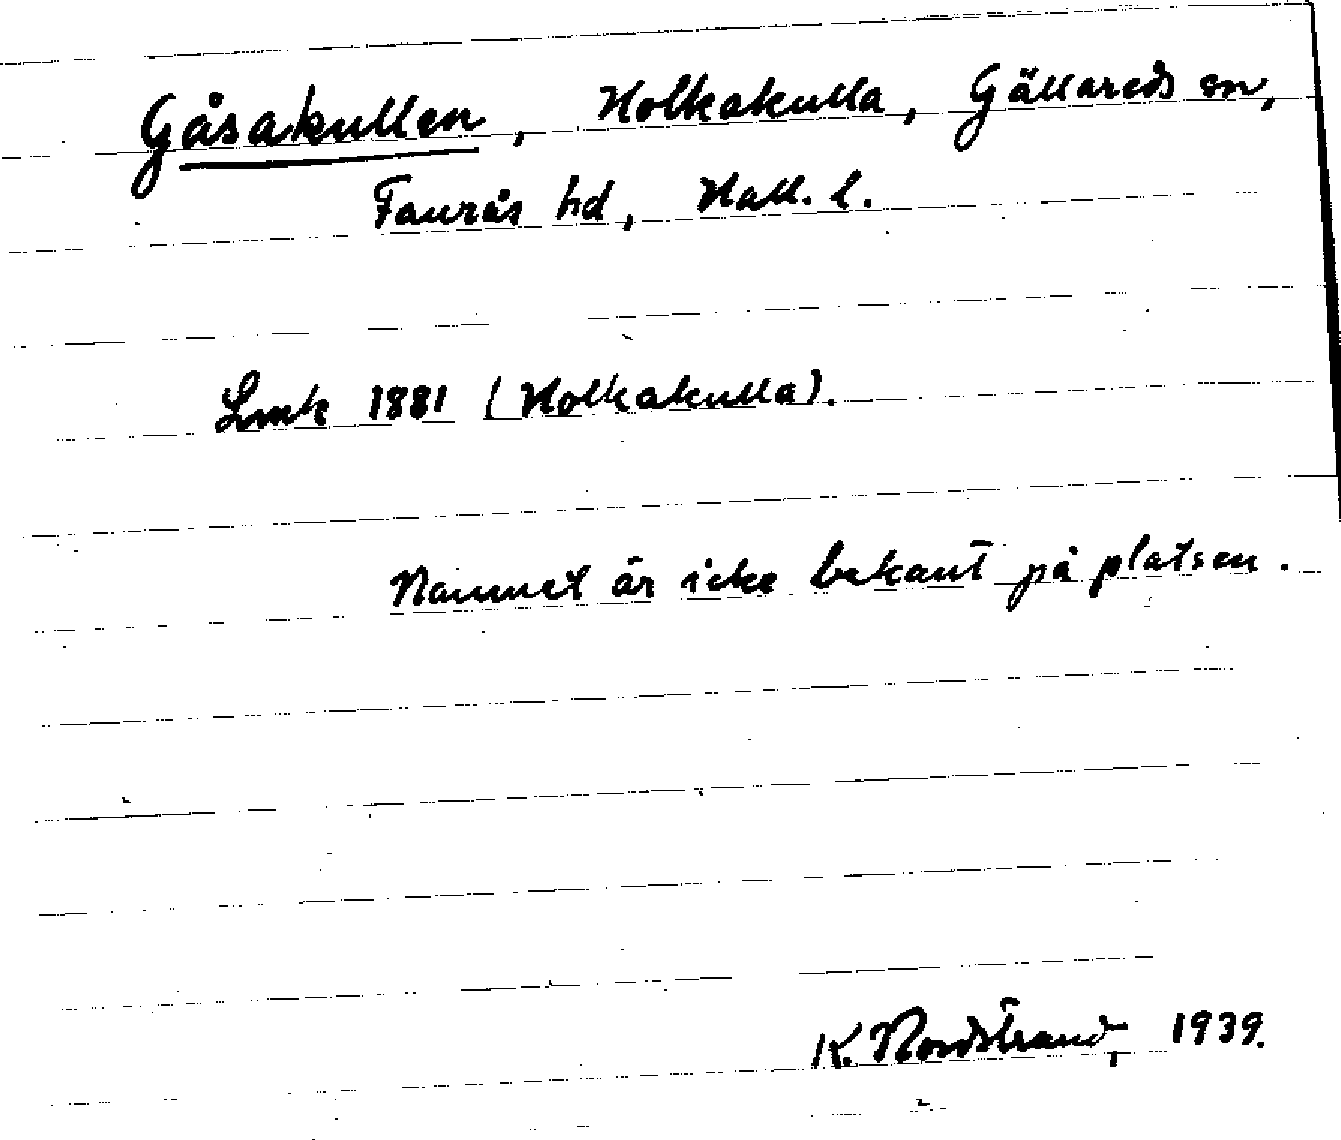 Gåsakullen, Holkakulla, Gällareds sn,
Faurås hd, Hall. l.
Lmk 1881 (Holkakulla).
Namnet är icke bekant på platsen.
K. Nordstrand, 1939.